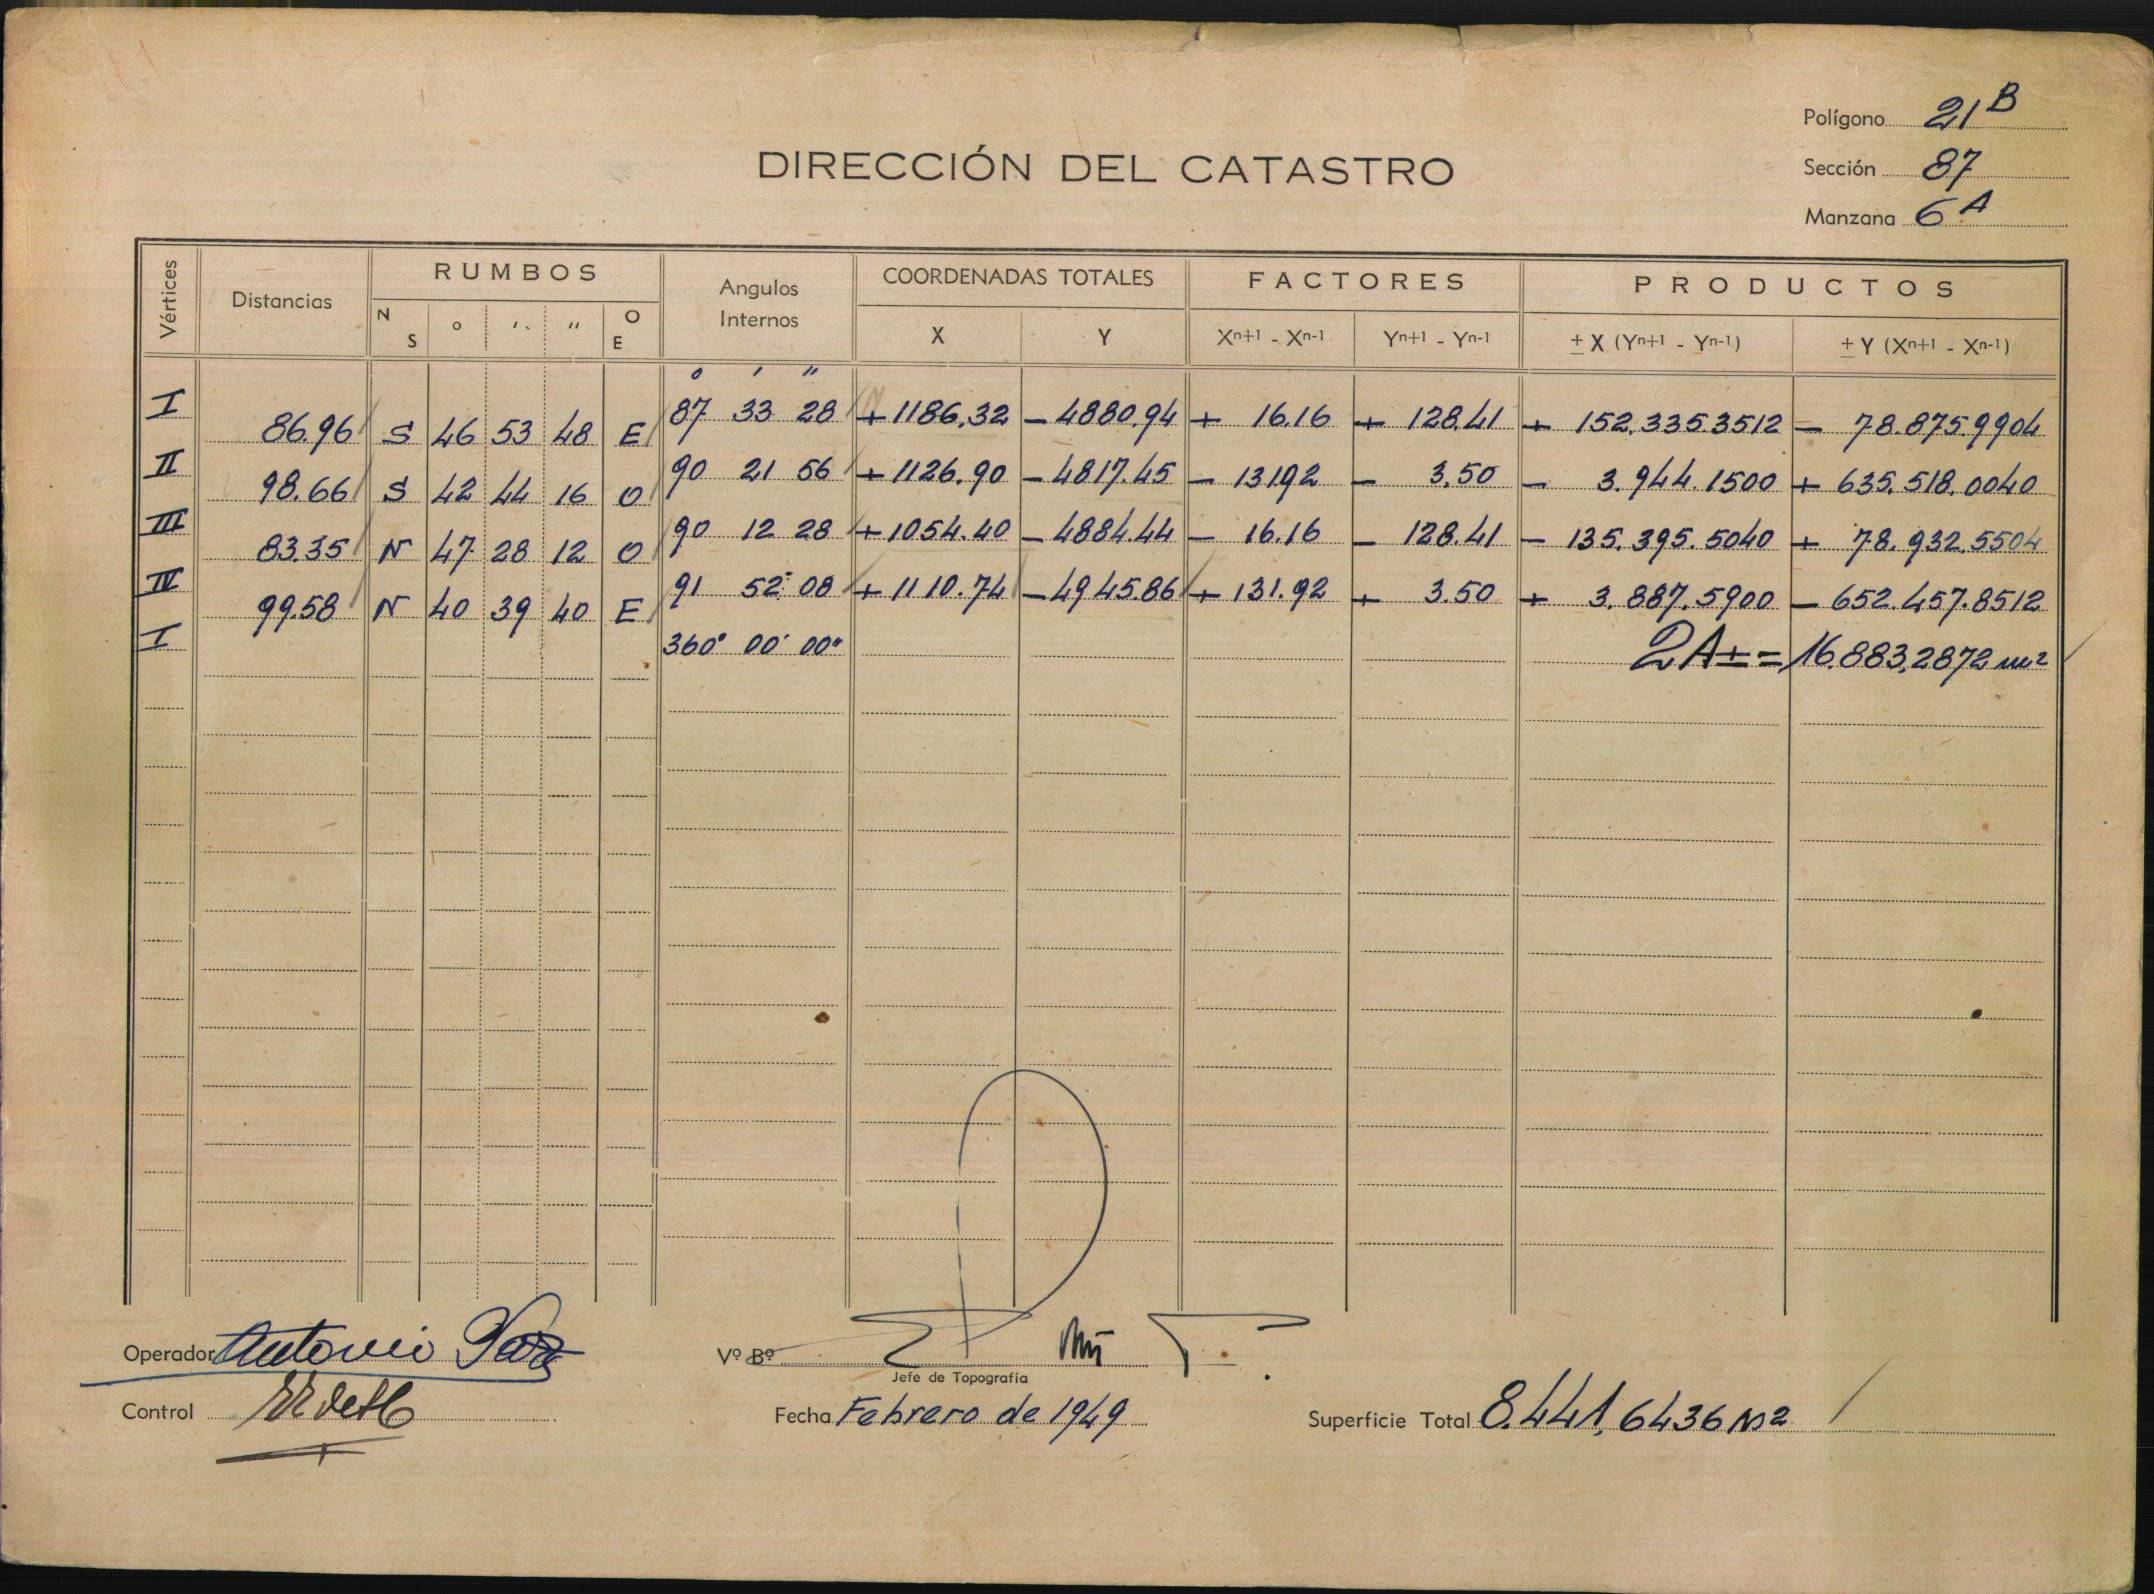 Polígono 21 B
Sección 87
Manzana 6 A
DIRECCIÓN DEL CATASTRO
Vértices Distancias RUMBOS Angulos Internos COORDENADAS TOTALES FACTORES PRODUCTOS
N S o ' " O E X Y Xn+1 - Xn-1 Yn+1 - Yn-1 ± X (Yn+1 - Yn-1) ± Y (Xn+1 - Xn-1)
o ' "
I 87 33 28 +1186.32 -4880.94 + 16.16 + 128.41 + 152.335.3512 - 78.875.9904
86.96 S 46 53 48 E
II 90 21 56 +1126.90 -4817.45 - 131.92 - 3.50 - 3.944.1500 + 635.518.0040
98.66 S 42 44 16 O
III 90 12 28 +1054.40 -4884.44 - 16.16 - 128.41 - 135.395.5040 + 78.932.5504
83.35 N 47 28 12 O
IV 91 52 08 +1110.74 -4945.86 + 131.92 + 3.50 + 3.887.5900 - 652.457.8512
99.58 N 40 39 40 E
I 360° 00' 00" 2A± = 16.883,2872 m2
Operador Antonio
Vº Bº
Jefe de Topografía
Control
Fecha Febrero de 1949
Superficie Total 8.441,6436 M2